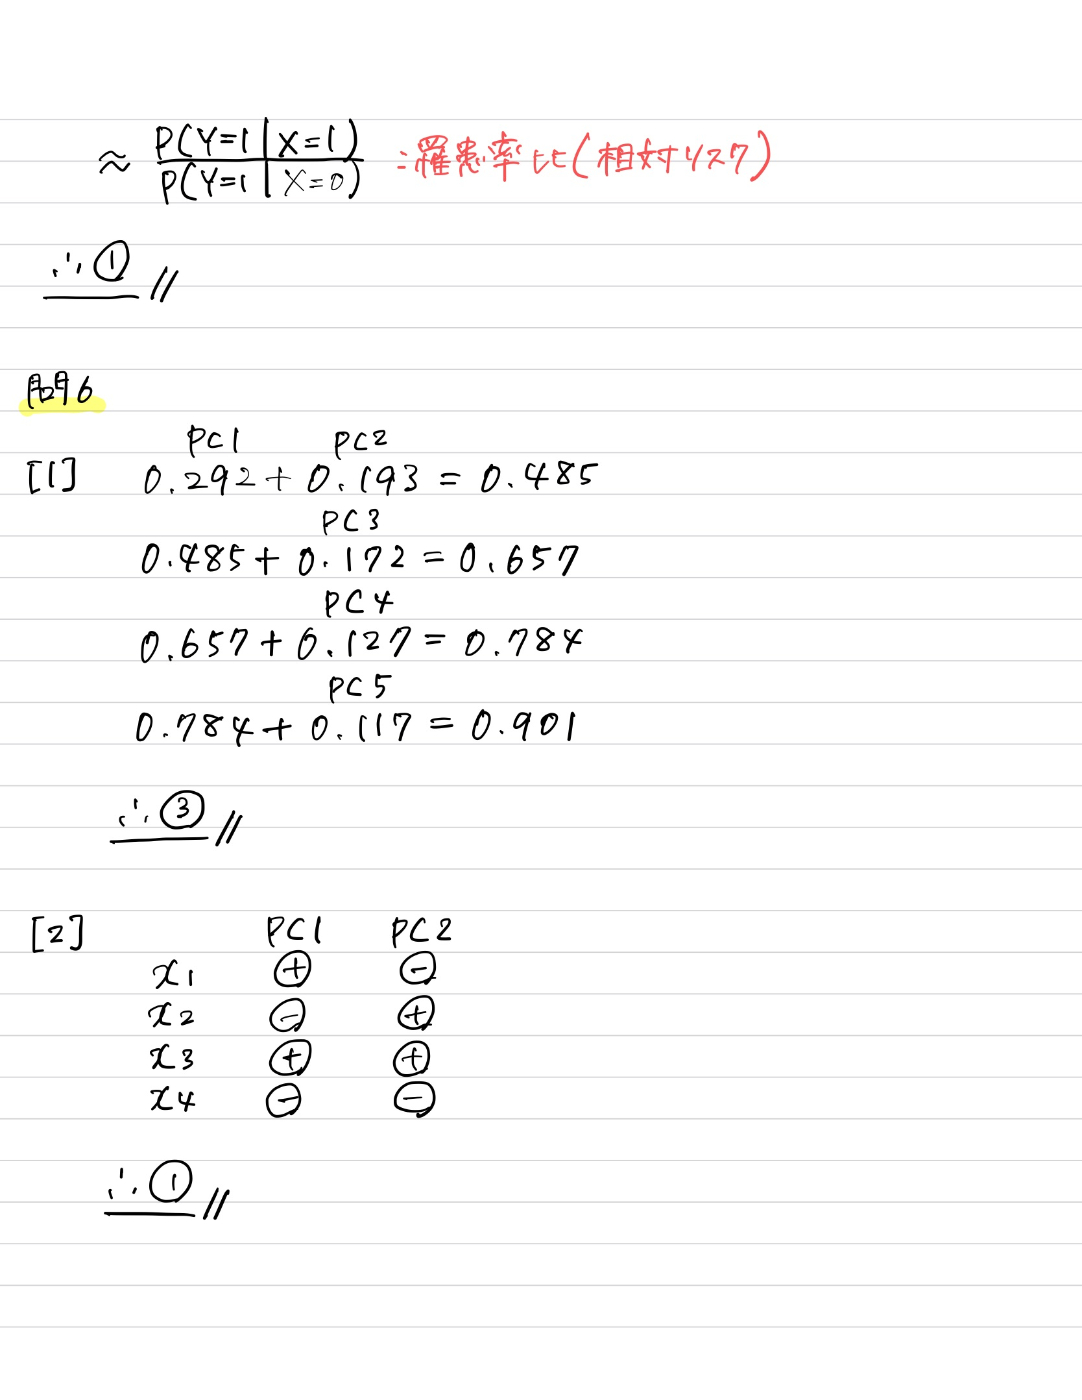 ≈ P(Y=1|X=1) / P(Y=1|X=0) :罹患率比(相対リスク)
∴ ① //
問6
PC1 PC2
[1] 0.292 + 0.193 = 0.485
PC3
0.485 + 0.172 = 0.657
PC4
0.657 + 0.127 = 0.784
PC5
0.784 + 0.117 = 0.901
∴ ③ //
[2] PC1 PC2
x1 ⊕ ⊖
x2 ⊖ ⊕
x3 ⊕ ⊕
x4 ⊖ ⊖
∴ ① //